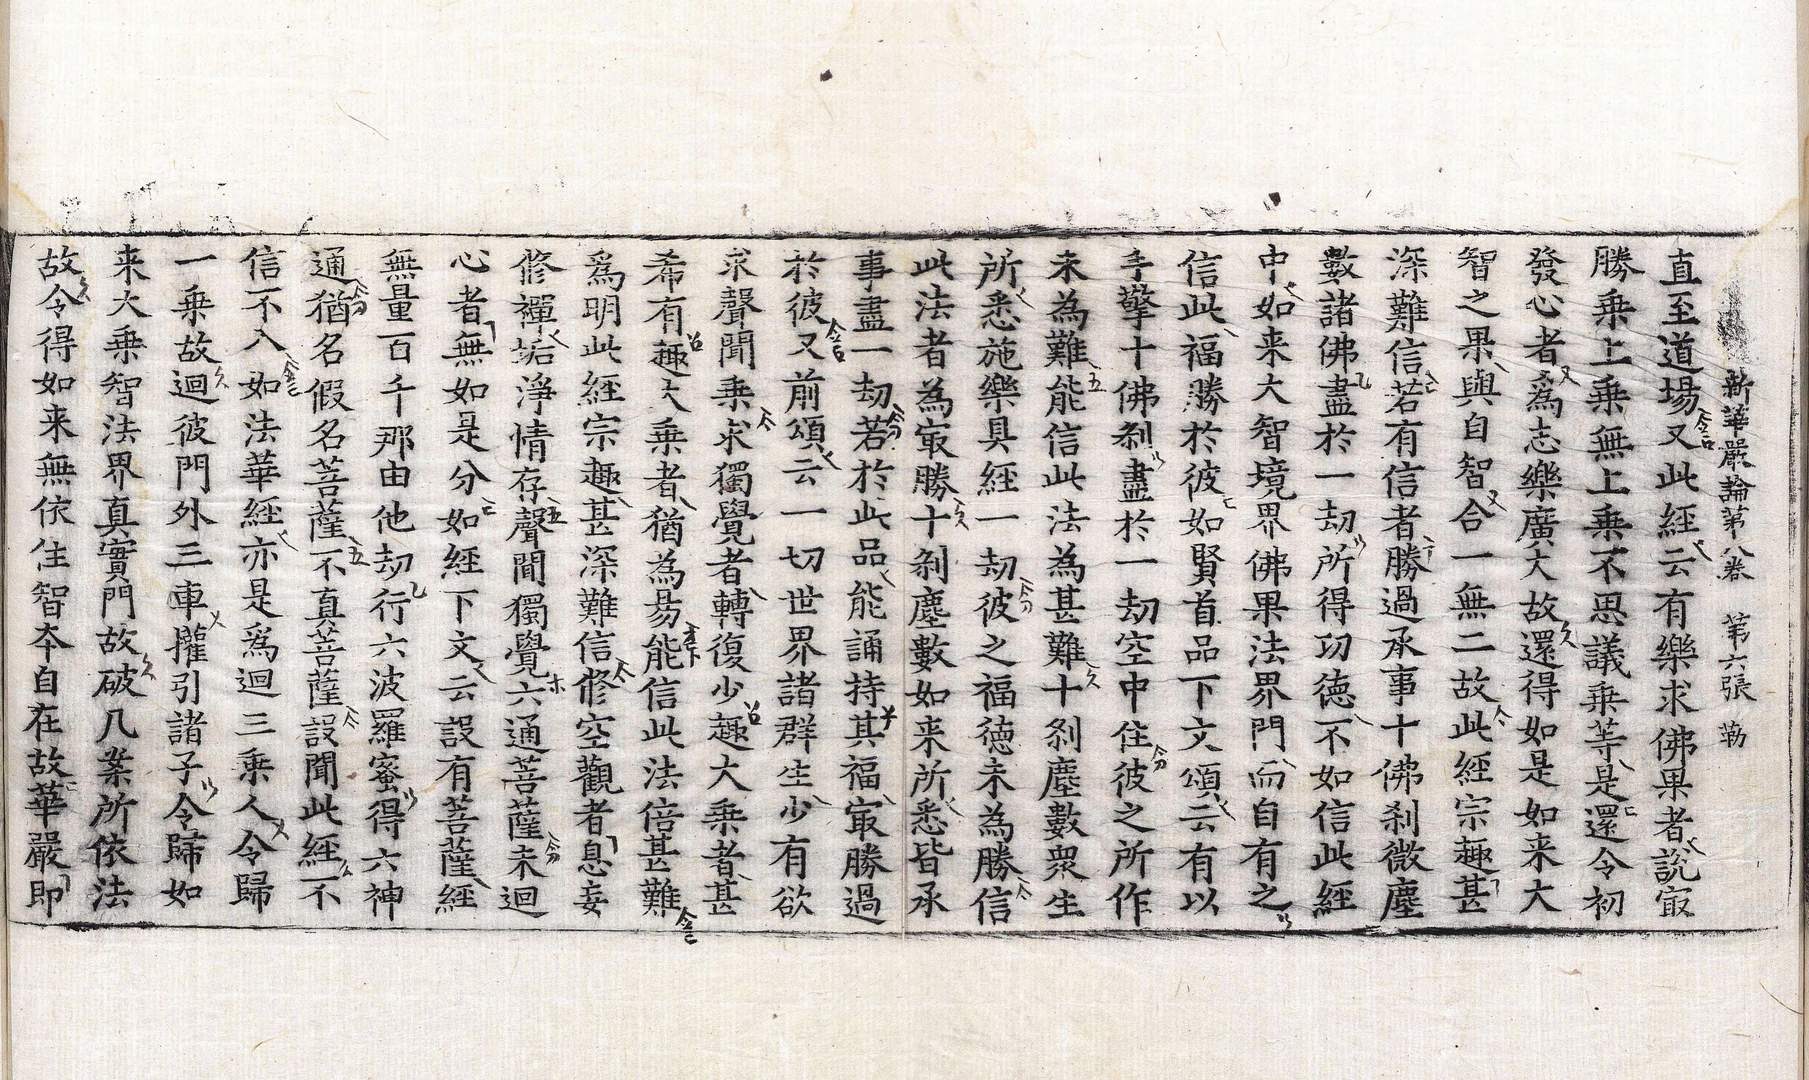 新華嚴論第八卷 第六張 勒
直至道場又此經云有樂求佛果者說冣
勝乗上乗無上乗不思議乗等是還令初
發心者爲志樂廣大故還得如是如来大
智之果與自智合一無二故此經宗趣甚
深難信若有信者勝過承事十佛刹微塵
數諸佛盡於一劫所得功德不如信此經
中如来大智境界佛果法界門而自有之
信此福勝於彼如賢首品下文頌云有以
手擎十佛刹盡於一劫空中住彼之所作
未為難能信此法為甚難十刹塵數衆生
所悉施樂具經一劫彼之福德未為勝信
此法者為冣勝十刹塵數如来所悉皆承
事盡一劫若於此品能誦持其福冣勝過
於彼又前頌云一切世界諸群生少有欲
求聲聞乗求獨覺者轉復少趣大乗者甚
希有趣大乗者猶為易能信此法倍甚難
爲明此經宗趣甚深難信修空觀者息妄
修禪垢淨情存聲聞獨覺六通菩薩未迴
心者無如是分如經下文云設有菩薩經
無量百千那由他劫行六波羅蜜得六神
通猶名假名菩薩不真菩薩設聞此經不
信不入如法華經亦是爲迴三乗人令歸
一乗故迴彼門外三車攉引諸子令歸如
来大乗智法界真實門故破几案所依法
故令得如来無依住智夲自在故華嚴即